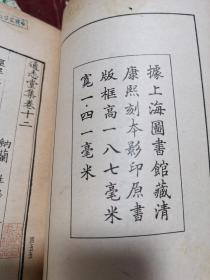 據上海圖書館藏清
康熙刻本影印原書
版框高一八七毫米
寬一·四一毫米
通志堂集卷十二
納蘭